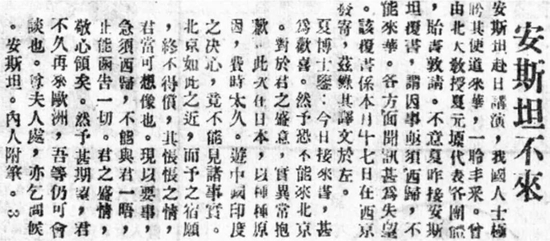 安斯坦不來
安斯坦赴日講演,我國人士極
盼其便道來華,一聆丰采。曾
由北大教授夏元瑮代表各團體
貽書敦請。不意夏昨接安斯
坦覆書,謂因事亟須西歸,不
能來華。各方面聞訊甚爲失望
。該覆書係本月十七日在西京
發寄,茲錄其譯文於左。
夏博士鑒:今日接來書,甚
爲歡喜。然予恐不能來北京
。對於君之盛意,實異常抱
歉。此次在日本,以種種原
因,費時太久。遊中國印度
之決心,竟不能見諸事實。
北京如此之近,而予之宿願
,終不得償,其悵悵之情,
君當可想像也。現以要事,
急須西歸,不能與君一晤,
止能函告一切。君之盛情,
敬心領矣。然予甚期望,君
不久再來歐洲,吾等仍可會
談也。尊夫人處,亦乞問候
。安斯坦。內人附筆。